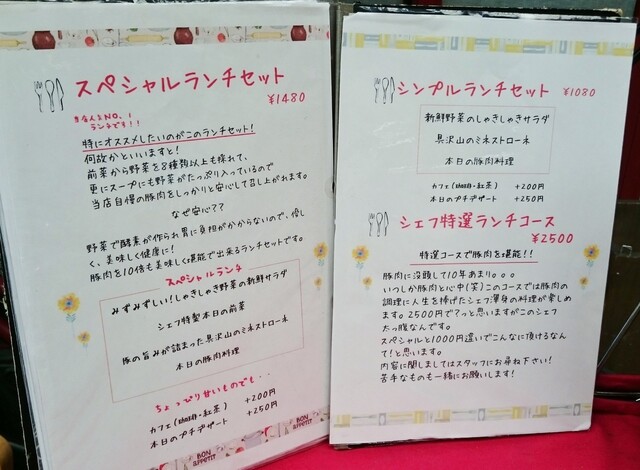 スペシャルランチセット
¥1480
当店人気NO.1
ランチです!!
特にオススメしたいのがこのランチセット!
何故かといいますと!
前菜から野菜を8種類以上も採れて、
更にスープにも野菜がたっぷり入っているので
当店自慢の豚肉をしっかりと安心して召し上がれます。
なぜ安心??
野菜で酵素が作られ胃に負担がかからないので、優し
く、美味しく健康に!
豚肉を10倍も美味しく堪能で出来るランチセットです。
スペシャルランチ
みずみずしい!しゃきしゃき野菜の新鮮サラダ
シェフ特製本日の前菜
豚の旨みが詰まった具沢山のミネストローネ
本日の豚肉料理
ちょっぴり甘いものでも・・
カフェ(珈琲・紅茶) +200円
本日のプチデザート +250円
BON APPETIT
BON APPETIT
シンプルランチセット ¥1080
新鮮野菜のしゃきしゃきサラダ
具沢山のミネストローネ
本日の豚肉料理
カフェ(珈琲・紅茶) +200円
本日のプチデザート +250円
シェフ特選ランチコース
¥2500
特選コースで豚肉を堪能!!
豚肉に没頭して10年あまり。。。
いつしか豚肉と心中(笑)このコースでは豚肉の
調理に人生を捧げたシェフ渾身の料理が楽しめ
ます。2500円で?っと思いますがこのシェフ
太っ腹なんです。
スペシャルと1000円違いでこんなに頂けるなん
て!と思います。
内容に関しましてはスタッフにお尋ね下さい!
苦手なものも一緒にお願いします!